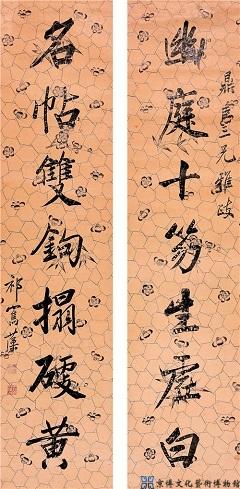 幽庭十笏生虛白
三兄雅政
名帖雙鉤搨硬黃
祁寯藻
京博文化藝術博物館